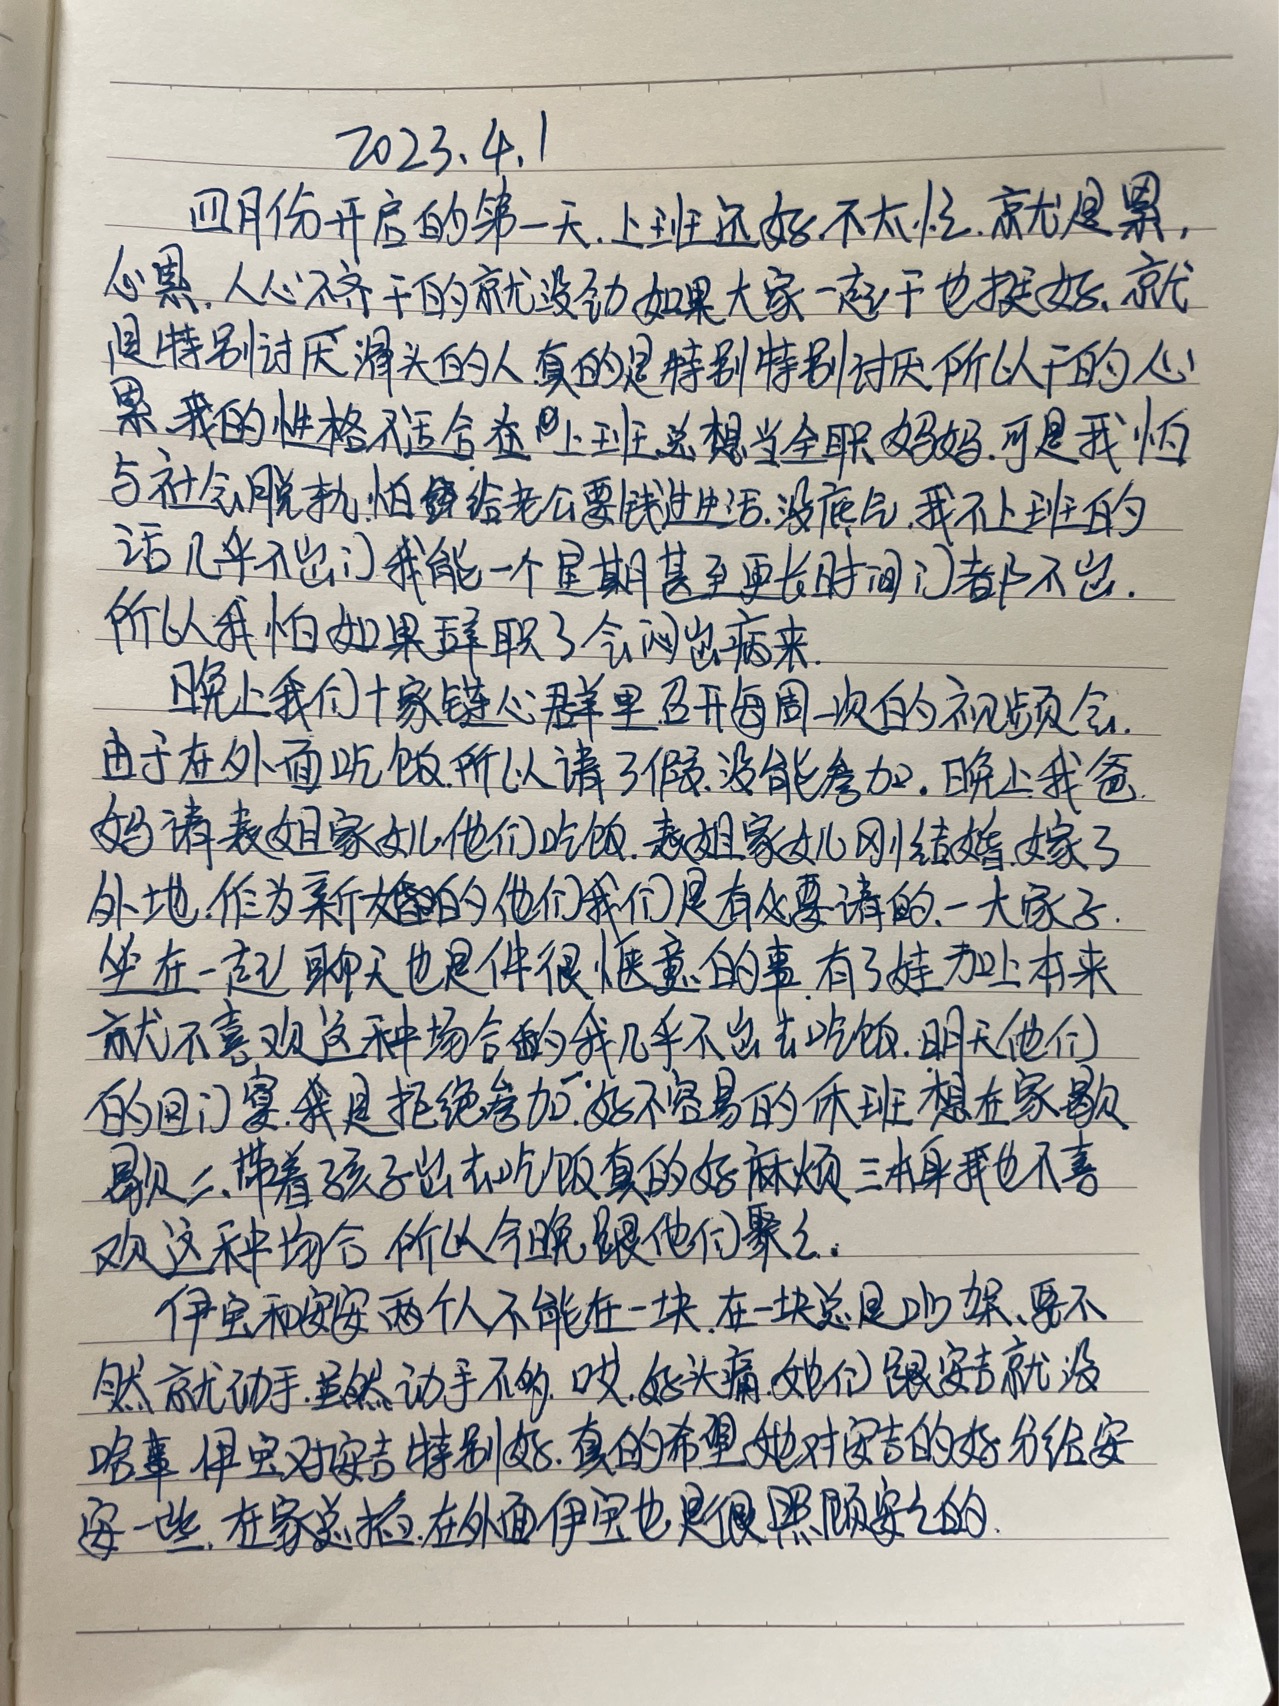 2023.4.1
四月份开启的第一天.上班还好.不太忙.就是累,
心累.人心不齐干的就没劲如果大家一起干也挺好、就
是特别讨厌滑头的人真的是特别特别讨厌.所以干的心
累.我的性格不适合在上班.总想当全职妈妈.可是我怕
与社会脱轨.怕给老公要钱过生活.没底气.我不上班的
话几乎不出门.我能一个星期甚至更长时间门都不出.
所以我怕如果辞职了会闷出病来.
晚上我们十家链心群里召开每周一次的视频会.
由于在外面吃饭.所以请了假.没能参加.晚上我爸
妈请表姐家女儿他们吃饭.表姐家女儿刚结婚.嫁了
外地.作为新婚的他们我们是有必要请的、一大家子.
坐在一起聊天也是件很惬意的事.有了娃加上本来
就不喜欢这种场合的我几乎不出去吃饭.明天他们
的回门宴.我是拒绝参加.好不容易的休班想在家歇
歇.二、带着孩子出去吃饭真的好麻烦三本身我也不喜
欢这种场合.所以今晚跟他们聚聚.
伊宝和安安两个人不能在一块.在一块总是吵架、要不
然就动手.虽然动手不多.哎.好头痛.她们跟安吉就没
啥事.伊宝对安吉特别好.真的希望她对安吉的好分给安
安一些.在家总掐.在外面伊宝也是很照顾安安的.